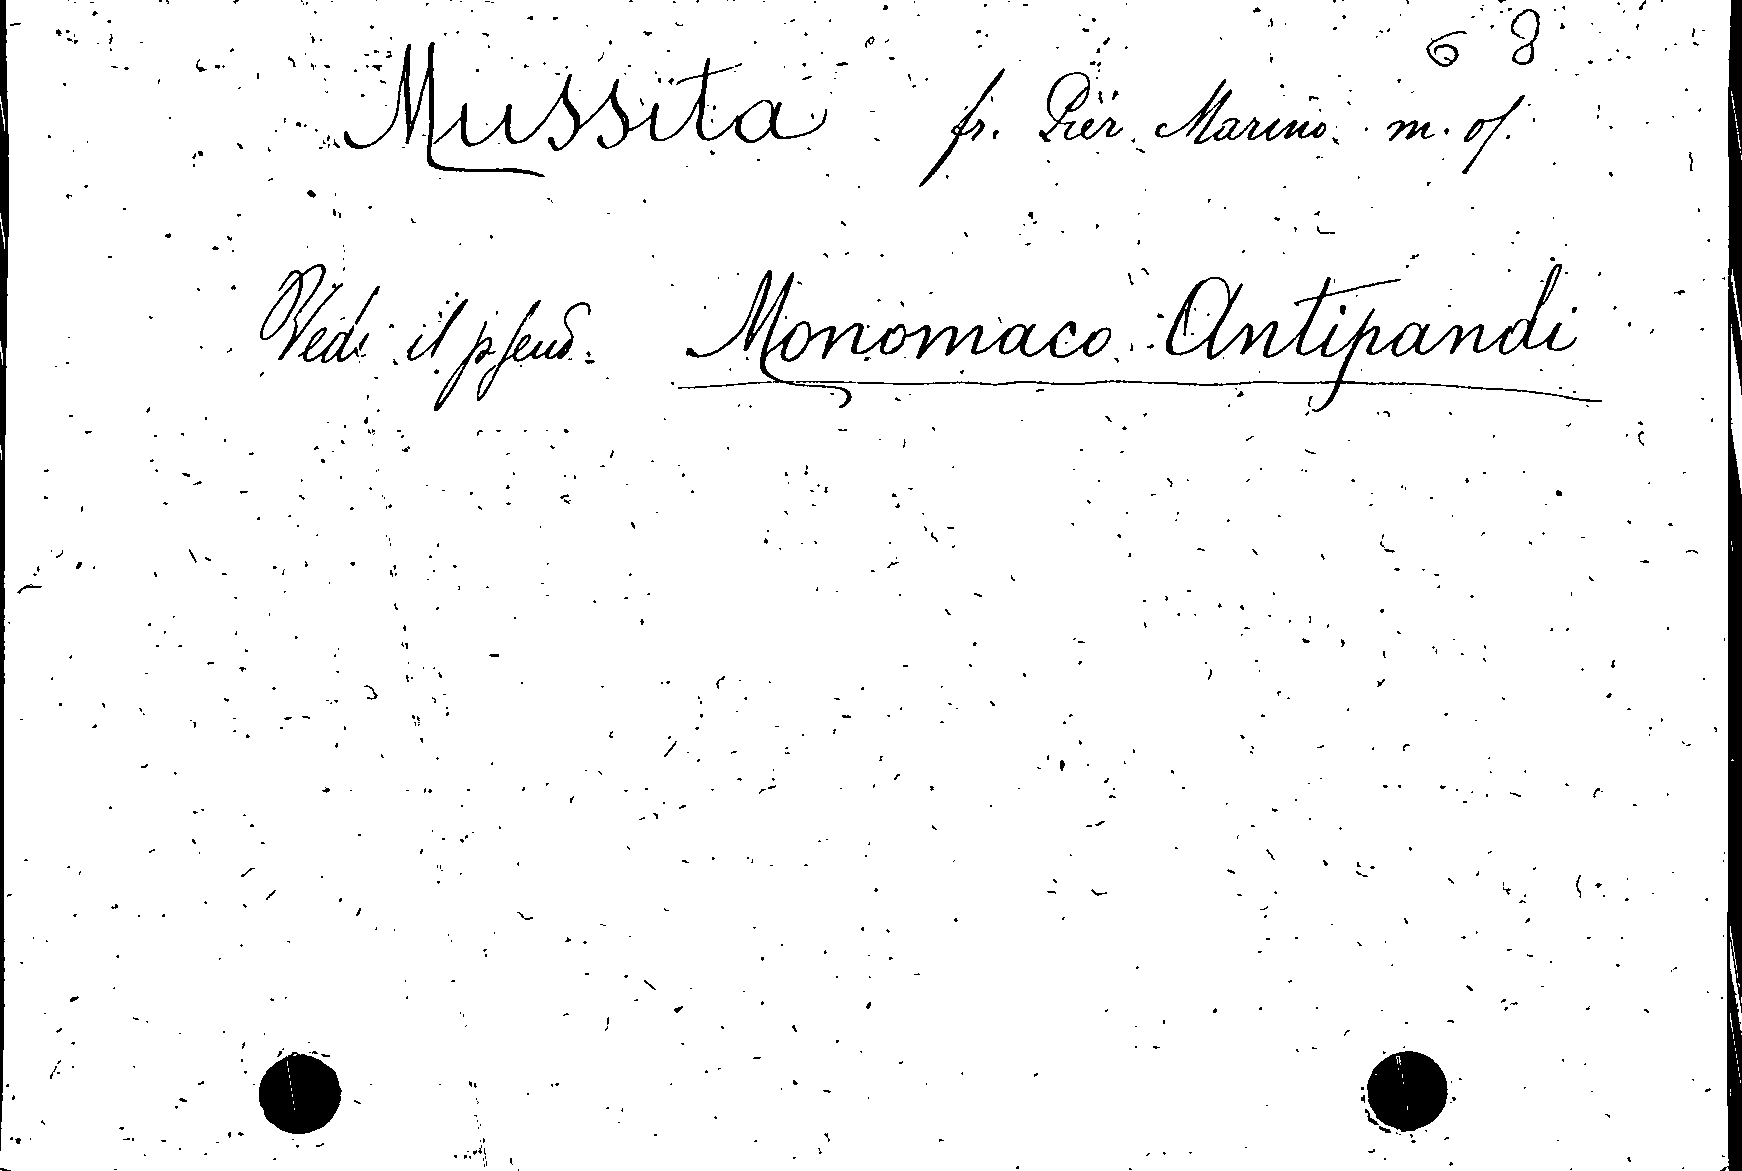 6 8
Mussita fr. Pier Marino. m. of.
Vedi il pseud. Monomaco Antipandi